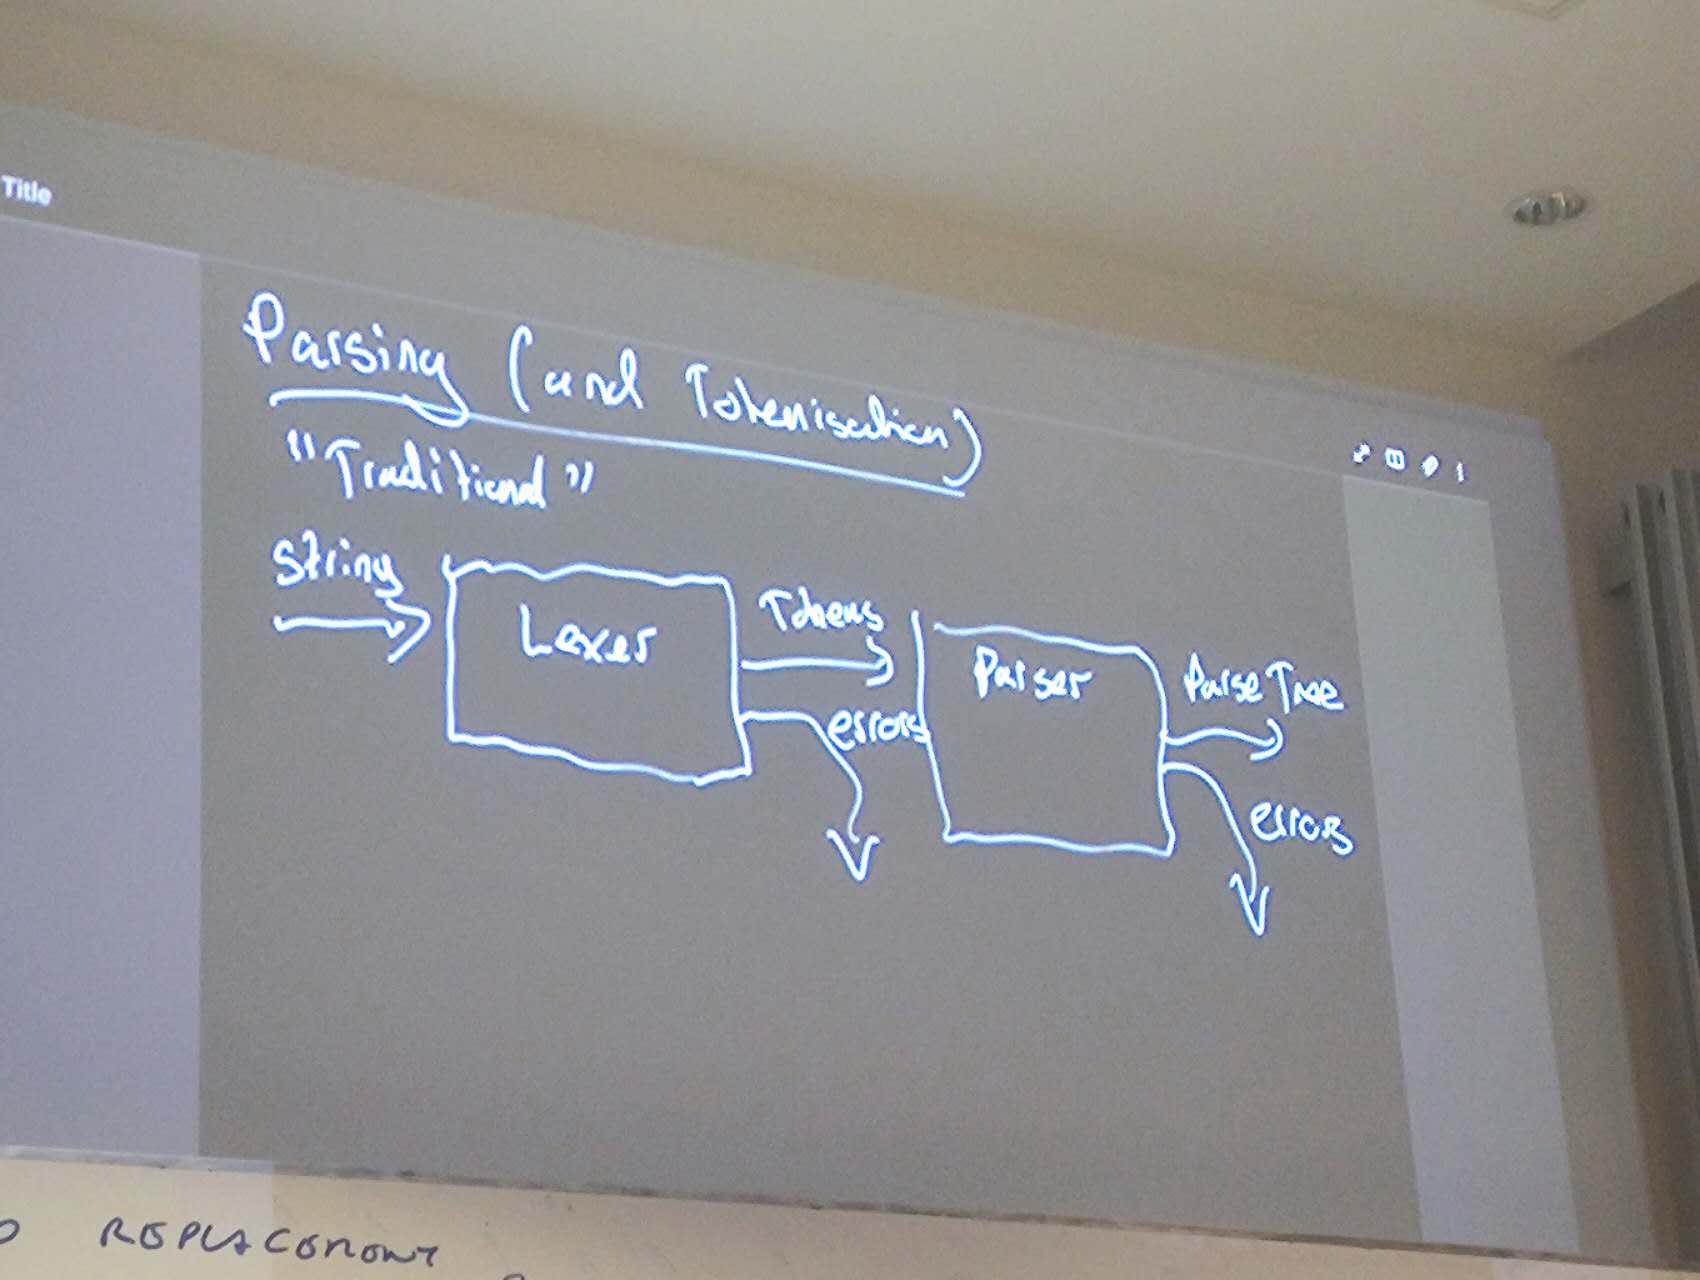 Title
Parsing (and Tokenisation)
"Traditional"
String
Lexer
Tokens
errors
Parser
Parse Tree
errors
REPLACEMENT